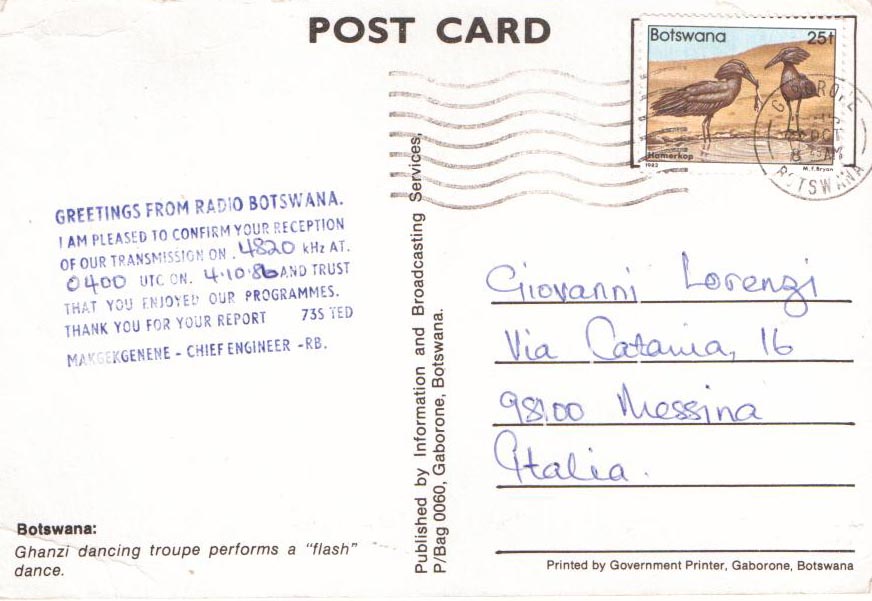 POST CARD
Botswana 25t
Hamerkop
1982 M.F.Bryan
GABORONE
OCT
BOTSWANA
GREETINGS FROM RADIO BOTSWANA.
I AM PLEASED TO CONFIRM YOUR RECEPTION
OF OUR TRANSMISSION ON . 4820 kHz AT.
0400 UTC ON. 4.10.86 AND TRUST
THAT YOU ENJOYED OUR PROGRAMMES.
THANK YOU FOR YOUR REPORT 73S TED
MAKGEKGENENE - CHIEF ENGINEER -RB.
Botswana:
Ghanzi dancing troupe performs a "flash"
dance.
Published by Information and Broadcasting Services,
P/Bag 0060, Gaborone, Botswana.
Giovanni Lorenzi
Via Catania, 16
98100 Messina
Italia.
Printed by Government Printer, Gaborone, Botswana